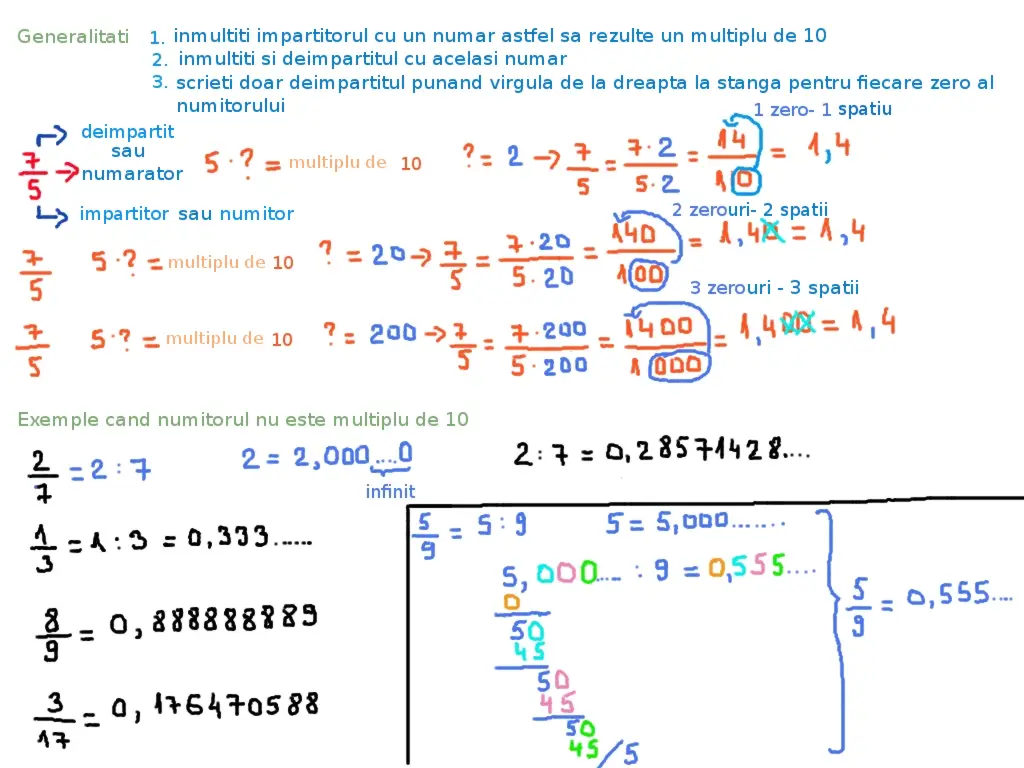 Generalitati 1. inmultiti impartitorul cu un numar astfel sa rezulte un multiplu de 10
2. inmultiti si deimpartitul cu acelasi numar
3. scrieti doar deimpartitul punand virgula de la dreapta la stanga pentru fiecare zero al
numitorului
1 zero- 1 spatiu
deimpartit
sau
numarator
impartitor sau numitor
7/5 5 · ? = multiplu de 10 ? = 2 → 7/5 = 7·2/5·2 = 14/10 = 1,4
2 zerouri- 2 spatii
7/5 5 · ? = multiplu de 10 ? = 20 → 7/5 = 7·20/5·20 = 140/100 = 1,40 = 1,4
3 zerouri - 3 spatii
7/5 5 · ? = multiplu de 10 ? = 200 → 7/5 = 7·200/5·200 = 1400/1000 = 1,400 = 1,4
Exemple cand numitorul nu este multiplu de 10
2/7 = 2 : 7 2 = 2,000....0 2 : 7 = 0,28571428....
infinit
1/3 = 1 : 3 = 0,333......
8/9 = 0,888888889
3/17 = 0,176470588
5/9 = 5 : 9 5 = 5,000.......
5,000.... : 9 = 0,555....
0
50
45
50
45
50
45/5
5/9 = 0,555....